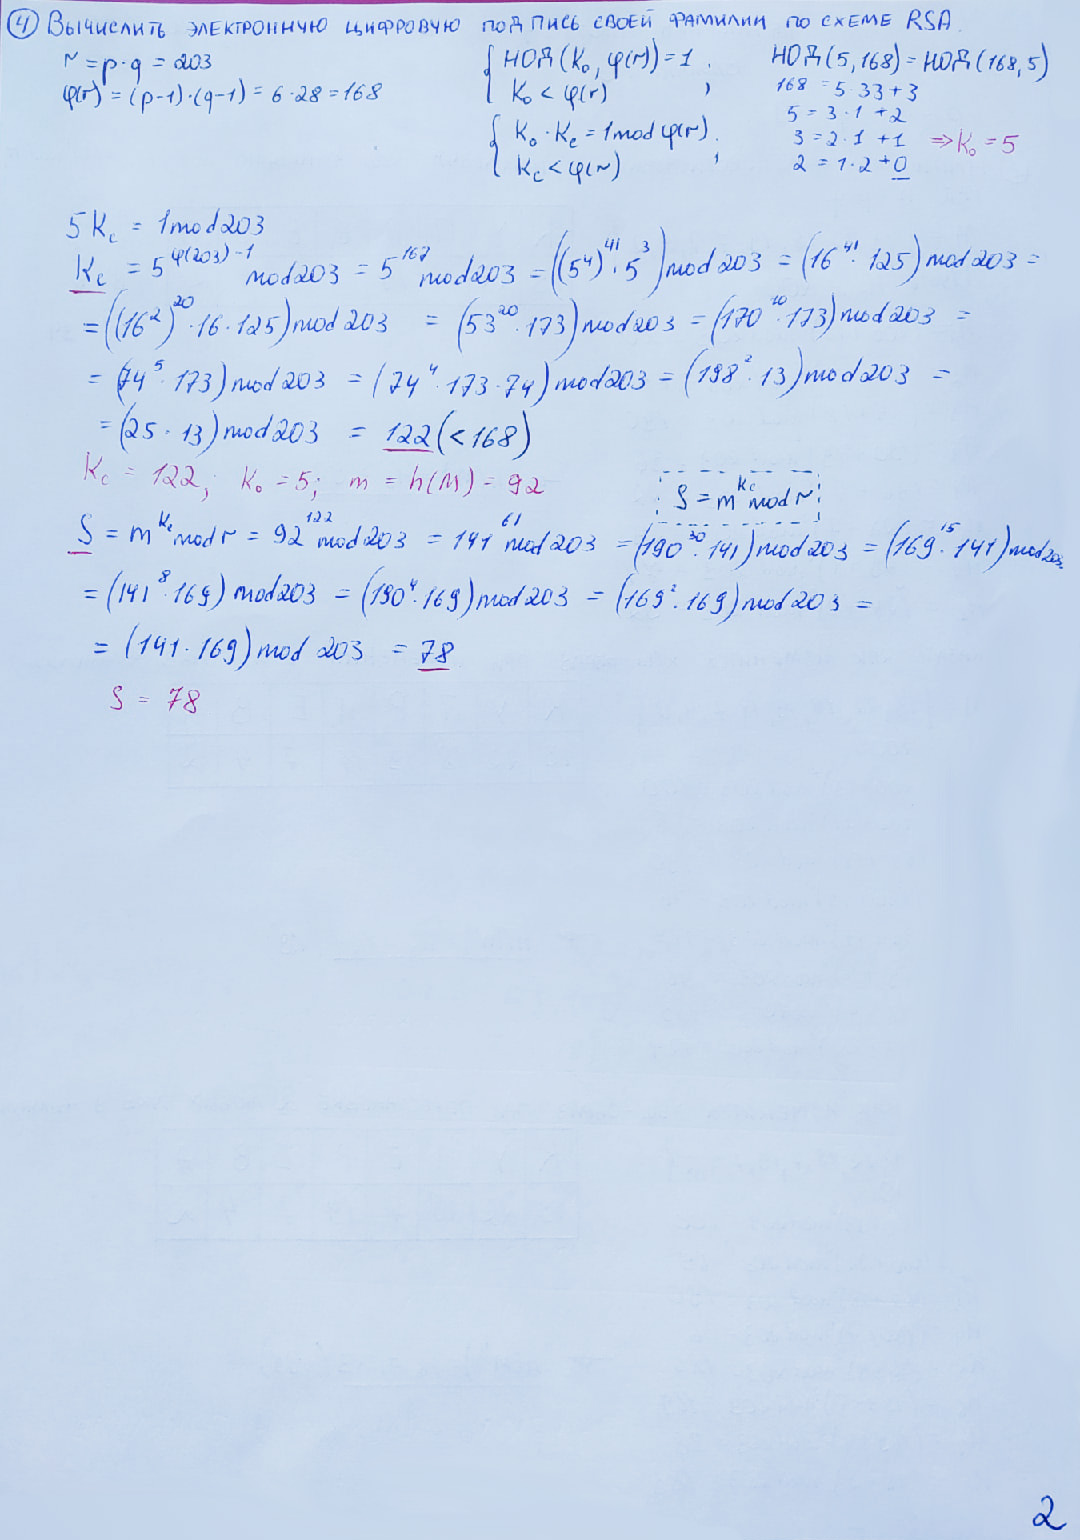 4 Вычислить электронную цифровую подпись своей фамилии по схеме RSA.
r = p·q = 203
φ(r) = (p-1)·(q-1) = 6·28 = 168
{ НОД(K₀, φ(r)) = 1,
K₀ < φ(r) ;
{ K₀·Kc = 1 mod φ(r).
Kc < φ(r) ;
НОД(5,168) = НОД(168,5)
168 = 5·33 + 3
5 = 3·1 + 2
3 = 2·1 + 1 ⇒ K₀ = 5
2 = 1·2 + 0
5Kc = 1 mod 203
Kc = 5^(φ(203)-1) mod 203 = 5^167 mod 203 = ((5^4)^41 · 5^3) mod 203 = (16^41 · 125) mod 203 =
= ((16^2)^20 · 16 · 125) mod 203 = (53^20 · 173) mod 203 = (170^10 · 173) mod 203 =
= (74^5 · 173) mod 203 = (74^4 · 173 · 74) mod 203 = (198^2 · 13) mod 203 =
= (25 · 13) mod 203 = 122 (< 168)
Kc = 122; K₀ = 5; m = h(M) = 92
S = m^Kc mod r
S = m^Kc mod r = 92^122 mod 203 = 141^61 mod 203 = (190^30 · 141) mod 203 = (169^15 · 141) mod 203
= (141^8 · 169) mod 203 = (190^4 · 169) mod 203 = (169^2 · 169) mod 203 =
= (141 · 169) mod 203 = 78
S = 78
2